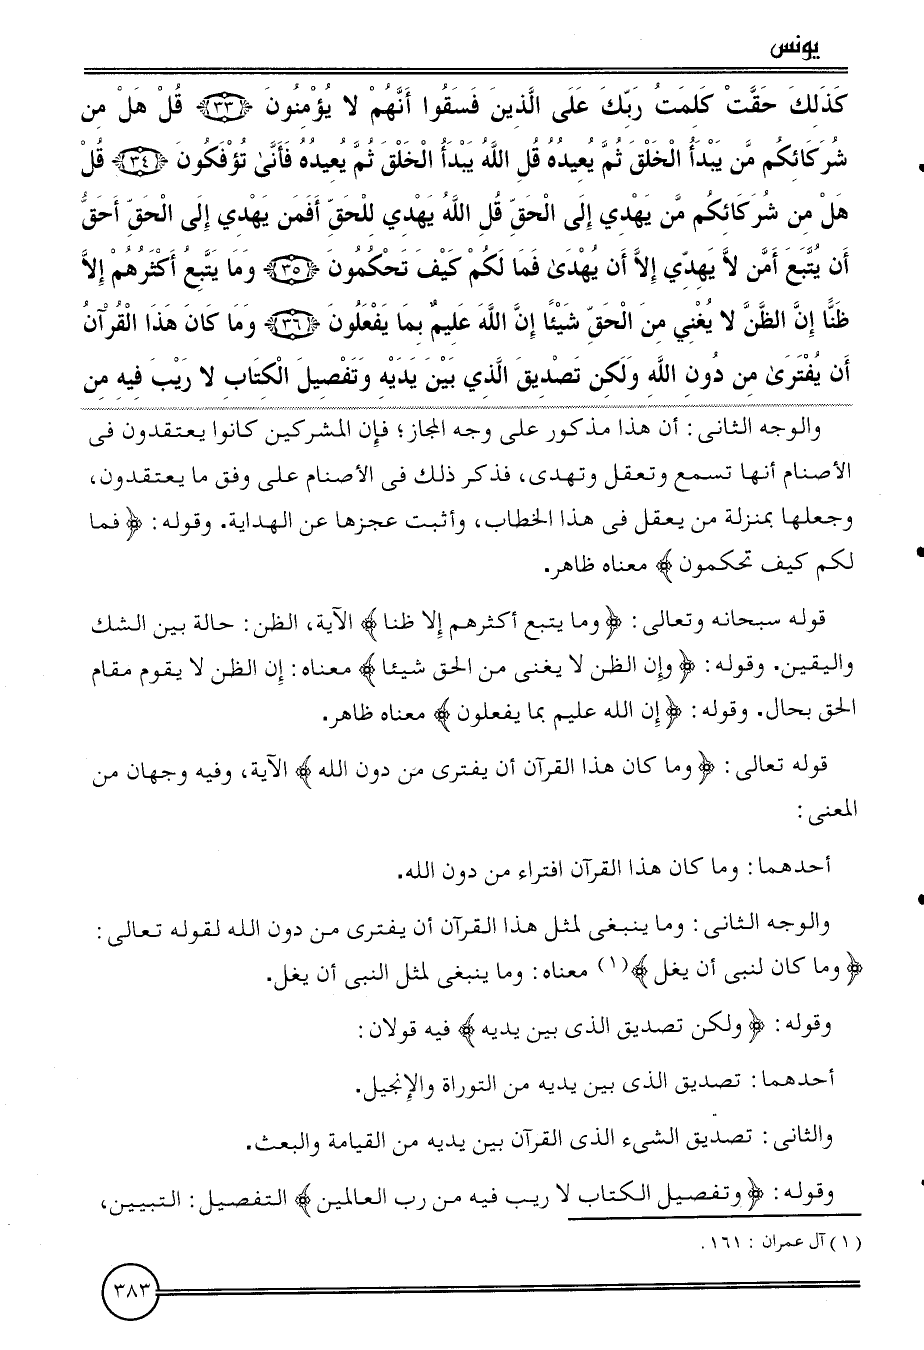 يونس
كَذَلِكَ حَقَّتْ كَلِمَتُ رَبِّكَ عَلَى الَّذِينَ فَسَقُوا أَنَّهُمْ لا يُؤْمِنُونَ ﴿٣٣﴾ قُلْ هَلْ مِن
شُرَكَائِكُم مَّن يَبْدَأُ الْخَلْقَ ثُمَّ يُعِيدُهُ قُلِ اللَّهُ يَبْدَأُ الْخَلْقَ ثُمَّ يُعِيدُهُ فَأَنَّىٰ تُؤْفَكُونَ ﴿٣٤﴾ قُلْ
هَلْ مِن شُرَكَائِكُم مَّن يَهْدِي إِلَى الْحَقِّ قُلِ اللَّهُ يَهْدِي لِلْحَقِّ أَفَمَن يَهْدِي إِلَى الْحَقِّ أَحَقُّ
أَن يُتَّبَعَ أَمَّن لاَّ يَهِدِّي إِلاَّ أَن يُهْدَىٰ فَمَا لَكُمْ كَيْفَ تَحْكُمُونَ ﴿٣٥﴾ وَمَا يَتَّبِعُ أَكْثَرُهُمْ إِلاَّ
ظَنًّا إِنَّ الظَّنَّ لا يُغْنِي مِنَ الْحَقِّ شَيْئًا إِنَّ اللَّهَ عَلِيمٌ بِمَا يَفْعَلُونَ ﴿٣٦﴾ وَمَا كَانَ هَذَا الْقُرْآنُ
أَن يُفْتَرَىٰ مِن دُونِ اللَّهِ وَلَكِن تَصْدِيقَ الَّذِي بَيْنَ يَدَيْهِ وَتَفْصِيلَ الْكِتَابِ لا رَيْبَ فِيهِ مِن
والوجه الثانى: أن هذا مذكور على وجه المجاز؛ فإن المشركين كانوا يعتقدون فى
الأصنام أنها تسمع وتعقل وتهدى، فذكر ذلك فى الأصنام على وفق ما يعتقدون،
وجعلها بمنزلة من يعقل فى هذا الخطاب، وأثبت عجزها عن الهداية. وقوله: ﴿ فما
لكم كيف تحكمون ﴾ معناه ظاهر.
قوله سبحانه وتعالى: ﴿ وما يتبع أكثرهم إلا ظنا ﴾ الآية، الظن: حالة بين الشك
واليقين. وقوله: ﴿ وإن الظن لا يغنى من الحق شيئا ﴾ معناه: إن الظن لا يقوم مقام
الحق بحال. وقوله: ﴿ إن الله عليم بما يفعلون ﴾ معناه ظاهر.
قوله تعالى: ﴿ وما كان هذا القرآن أن يفترى من دون الله ﴾ الآية، وفيه وجهان من
المعنى:
أحدهما: وما كان هذا القرآن افتراء من دون الله.
والوجه الثانى: وما ينبغى لمثل هذا القرآن أن يفترى من دون الله لقوله تعالى:
﴿ وما كان لنبى أن يغل ﴾(١) معناه: وما ينبغى لمثل النبى أن يغل.
وقوله: ﴿ ولكن تصديق الذى بين يديه ﴾ فيه قولان:
أحدهما: تصديق الذى بين يديه من التوراة والإنجيل.
والثانى: تصديق الشىء الذى القرآن بين يديه من القيامة والبعث.
وقوله: ﴿ وتفصيل الكتاب لا ريب فيه من رب العالمين ﴾ التفصيل: التبيين،
(١) آل عمران: ١٦١.
٣٨٣